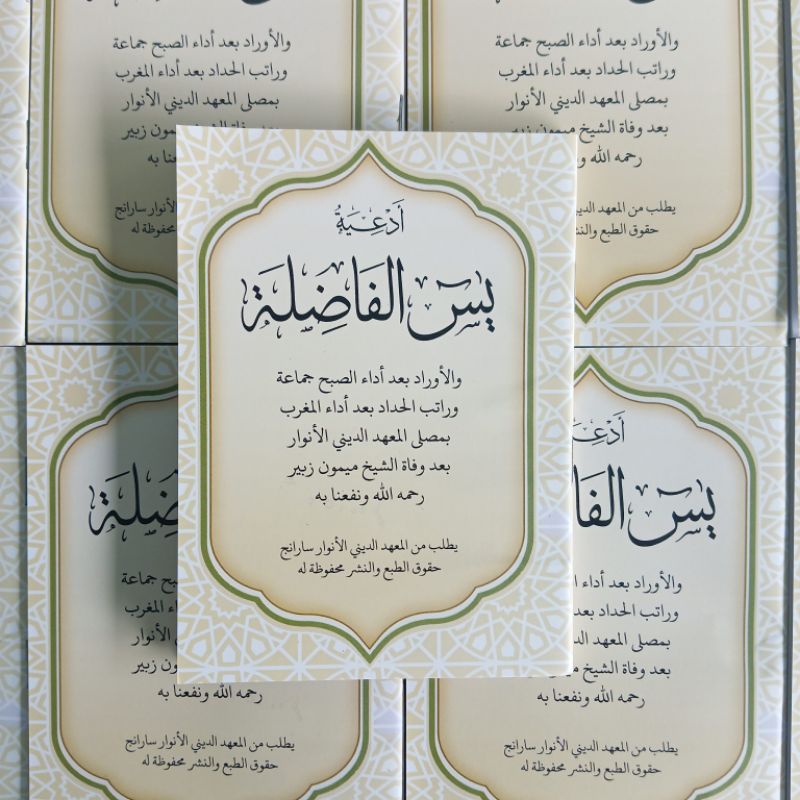 والأوراد بعد أداء الصبح جماعة
وراتب الحداد بعد أداء المغرب
بمصلى المعهد الديني الأنوار
بعد وفاة الشيخ ميمون زبير
والأوراد بعد أداء الصبح جماعة
وراتب الحداد بعد أداء المغرب
بمصلى المعهد الديني الأنوار
بعد وفاة الشيخ ميمون
رحمه الله ونفعنا به
الأنوار سارانج
محفوظة له
يطلب من المعهد الديني
حقوق الطبع والنشر
أَدْعِيَةُ
يٰسٓ الفَاضِلَة
والأوراد بعد أداء الصبح جماعة
وراتب الحداد بعد أداء المغرب
بمصلى المعهد الديني الأنوار
بعد وفاة الشيخ ميمون زبير
رحمه الله ونفعنا به
يطلب من المعهد الديني الأنوار سارانج
حقوق الطبع والنشر محفوظة له
الصبح جماعة
أداء المغرب
الأنوار
ميمون زبير
رحمه الله ونفعنا به
يطلب من المعهد الديني الأنوار سارانج
حقوق الطبع والنشر محفوظة له
يٰسٓ
والأوراد بعد أداء
وراتب الحداد بعد
بمصلى المعهد
بعد وفاة الشيخ
رحمه الله ونفعنا به
يطلب من المعهد الديني الأنوار سارانج
حقوق الطبع والنشر محفوظة له